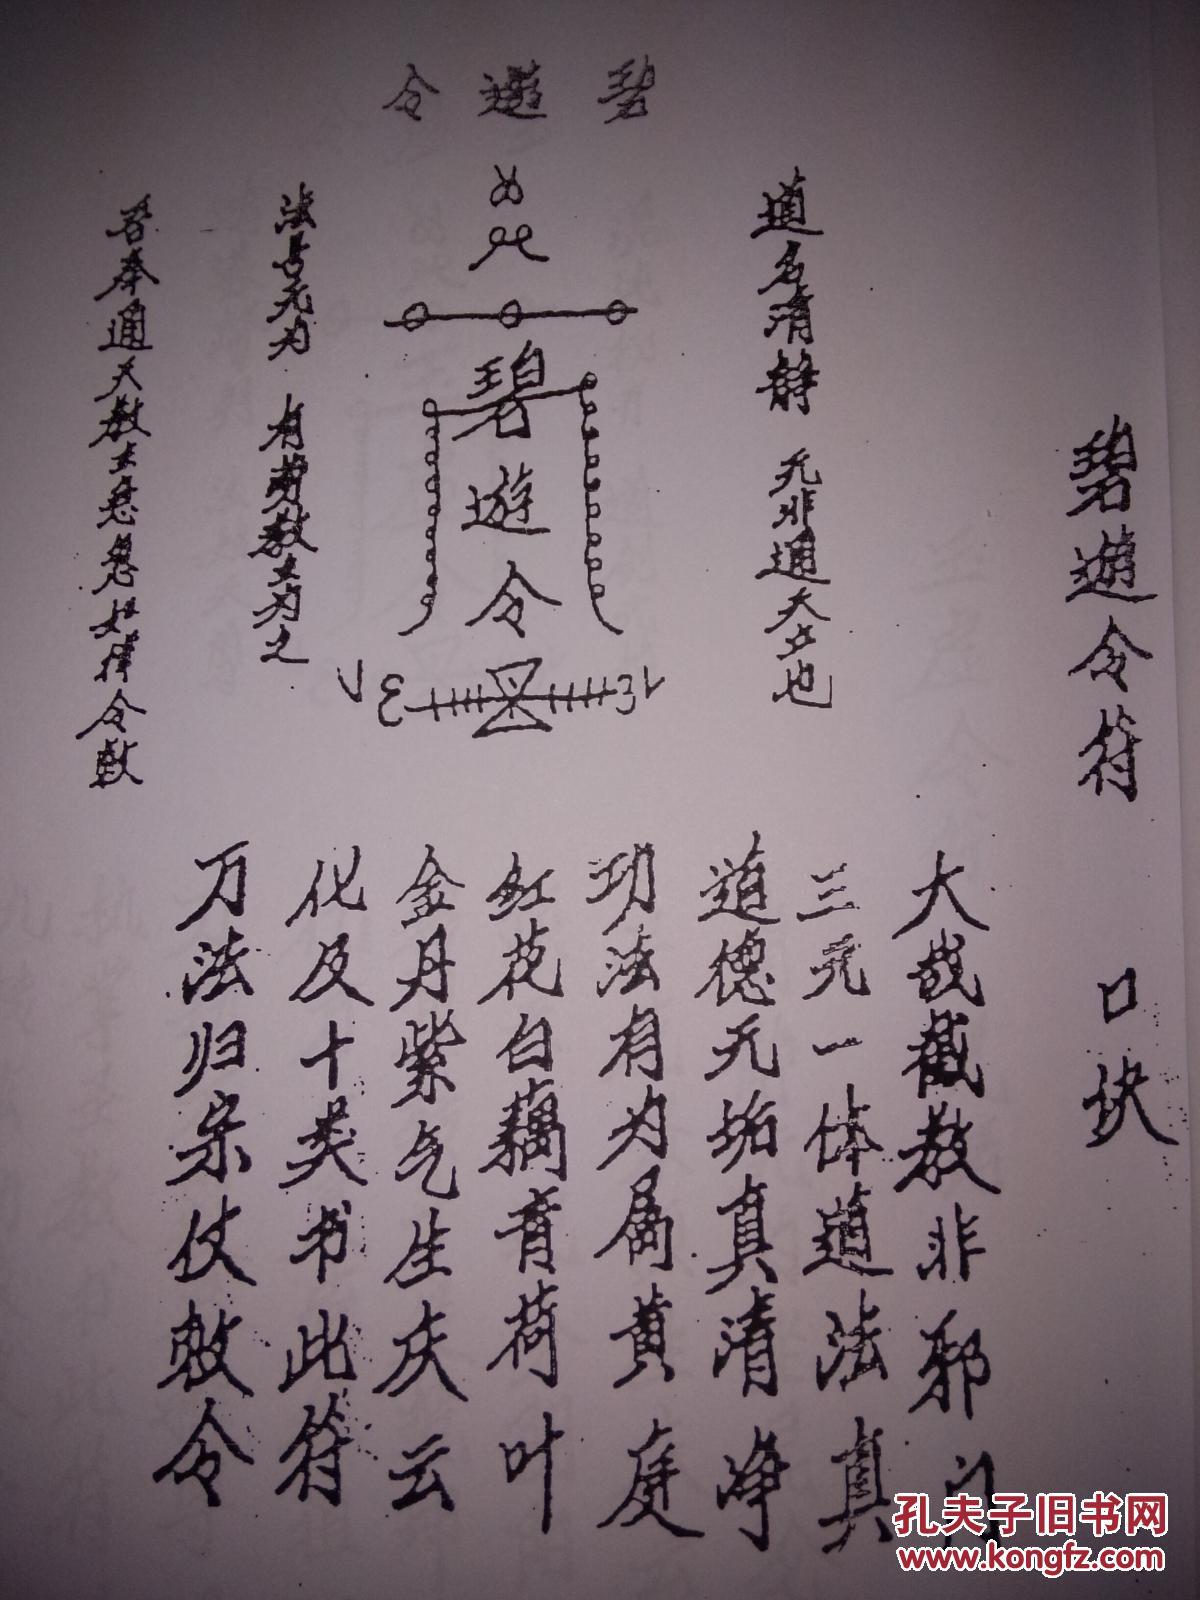 碧遊令符　口块
碧遊令
道名清静　无非通天立也
碧遊令
法言无为　有劳教主为之
吾奉通天教主急急如律令敕
大哉截教非邪门
三元一体道法真
道德无垢真清净
功法有为属黄庭
红花白藕青荷叶
金丹紫气生庆云
化及十类书此符
万法归宗仗敕令
孔夫子旧书网
www.kongfz.com